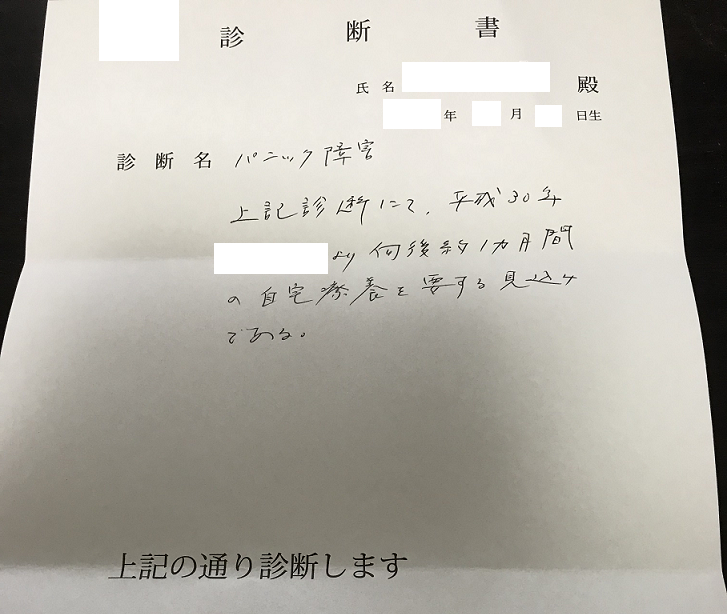 診断書
氏名 殿
年 月 日生
診断名 パニック障害
上記診断にて、平成30年
より向後約1カ月間
の自宅療養を要する見込み
である。
上記の通り診断します